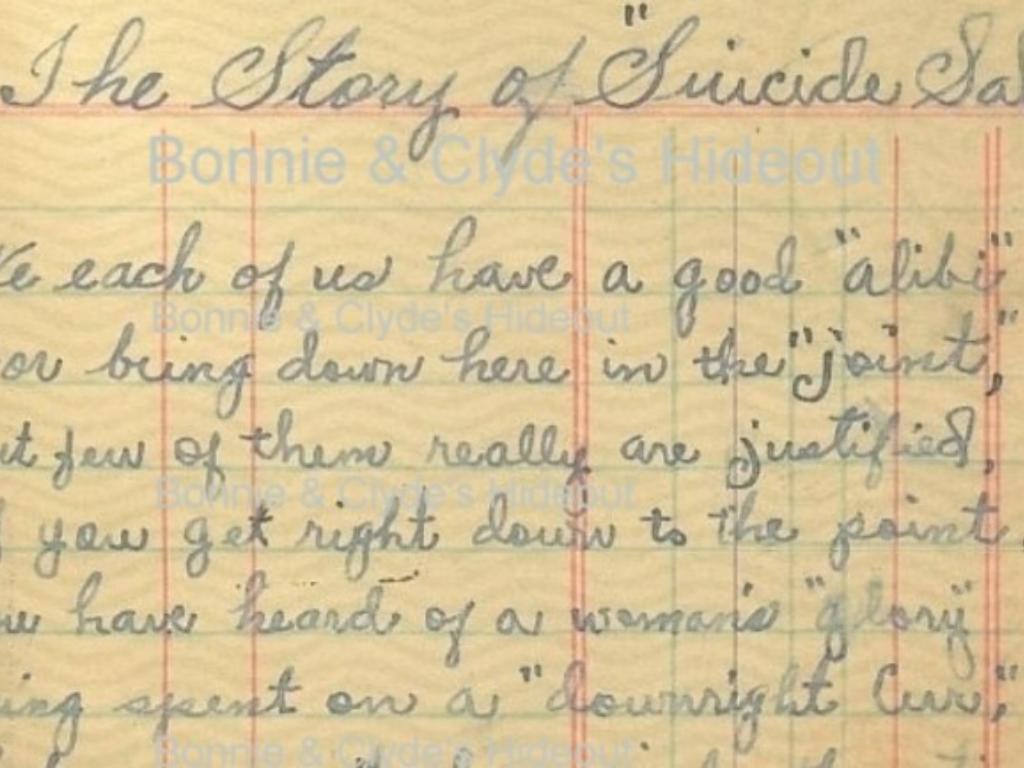 The Story of "Suicide Sal
Bonnie & Clyde's Hideout
We each of us have a good "alibi"
or being down here in the "joint,"
ut few of them really are justified,
f you get right down to the point.
ou have heard of a woman's "glory"
Bonnie & Clyde's Hideout
Bonnie & Clyde's Hideout
ing spent on a "downright Cur,"
Bonnie & Clyde's Hideout